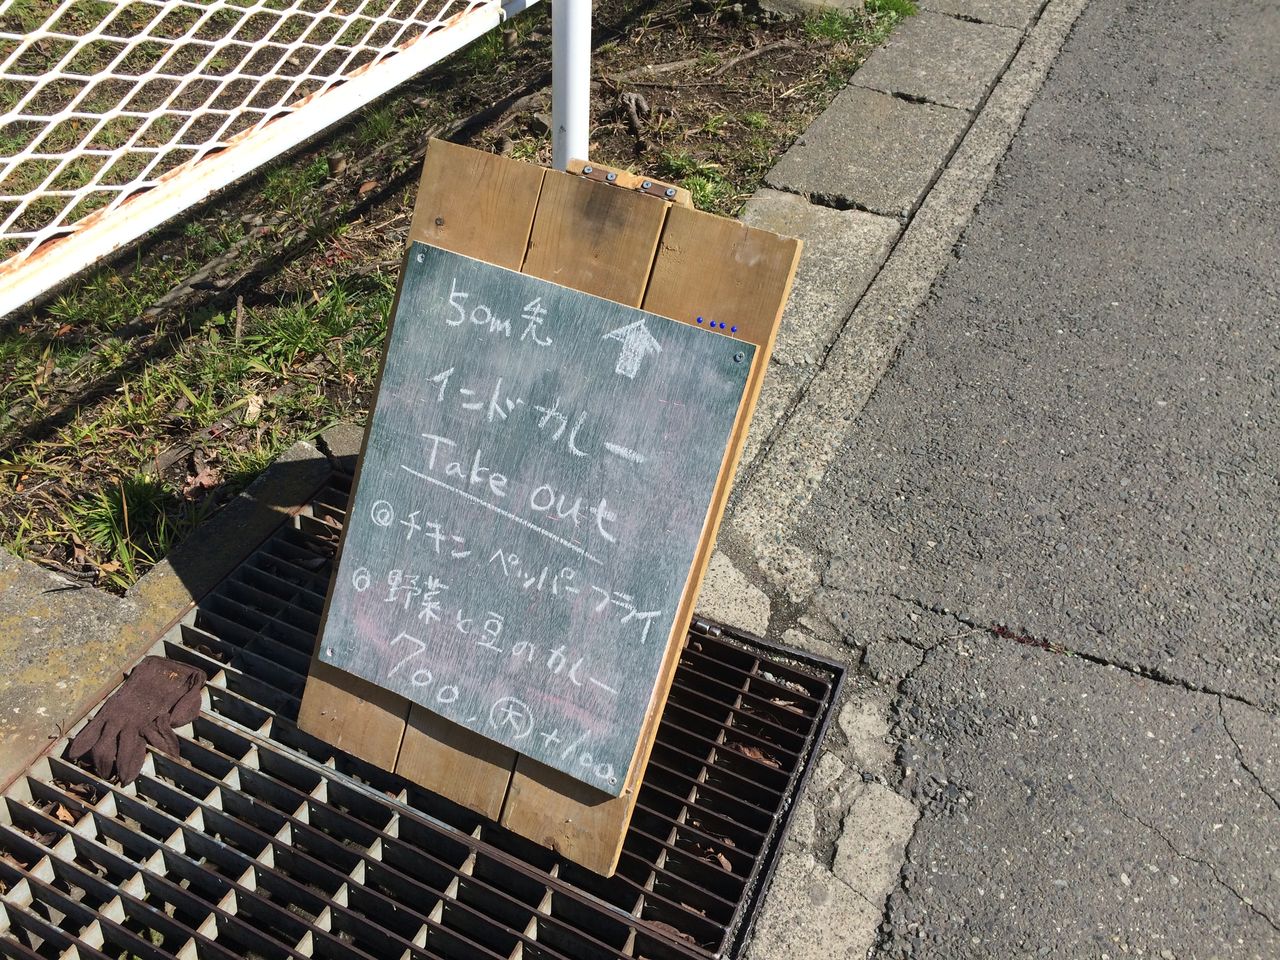 50m先 ↑
インドカレー
Take Out
◎チキンペッパーフライ
◎野菜と豆のカレー
700. 大+100